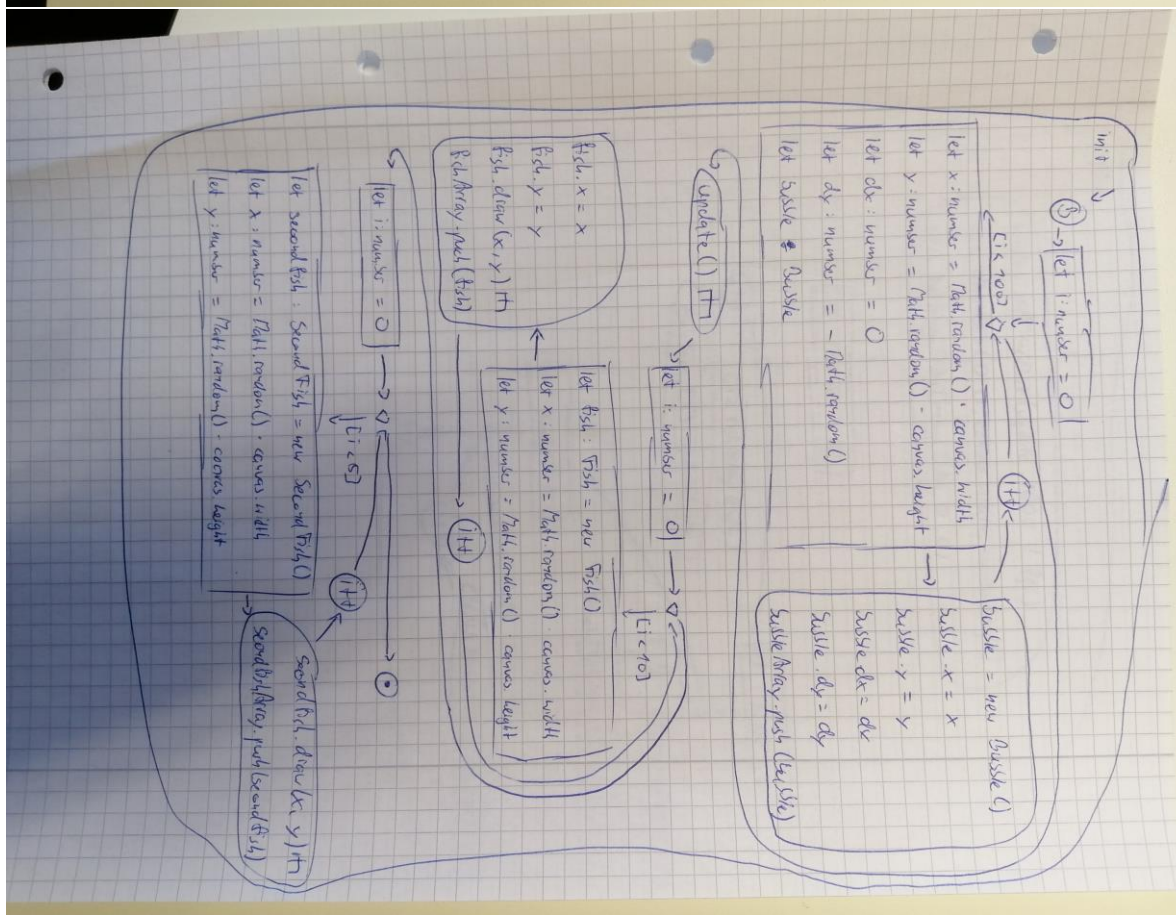 init
B
let i: number = 0
[i < 100]
i++
let x: number = Math.random() · canvas.width
let y: number = Math.random() · canvas.height
let dx: number = 0
let dy: number = - Math.random()
let bubble Bubble
bubble = new Bubble()
bubble.x = x
bubble.y = y
bubble dx = dx
bubble.dy = dy
bubbleArray.push(bubble)
update()
let i: number = 0
[i < 10]
let fish: Fish = new Fish()
let x: number = Math.random() canvas.width
let y: number = Math.random() · canvas height
fish.x = x
fish.y = y
fish.draw(x, y)
fishArray.push(fish)
i++
let i: number = 0
[i < 5]
let secondfish: SecondFish = new SecondFish()
let x: number = Math.random() · canvas.width
let y: number = Math.random() · canvas.height
secondfish.draw(x, y)
secondfishArray.push(secondfish)
i++